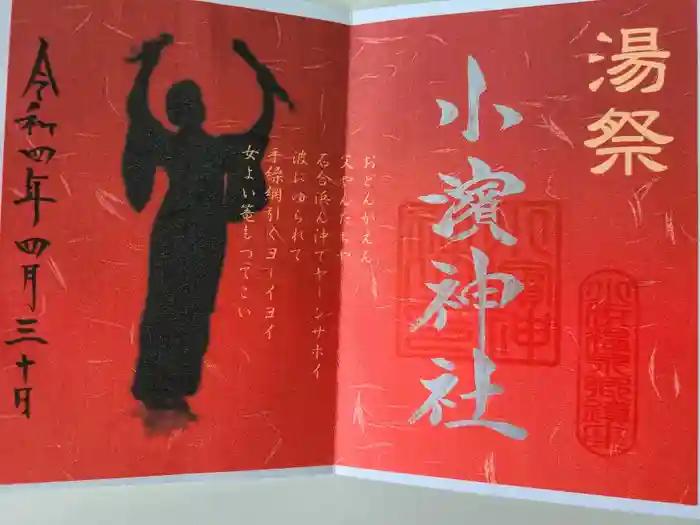 湯祭
小濱神社
おどんがええ
父やんたちや
石合浜ん沖でヤーンサホイ
波にゆられて
手繰網引くヨーイヨイ
女よい籠もってこい
令和四年四月三十日